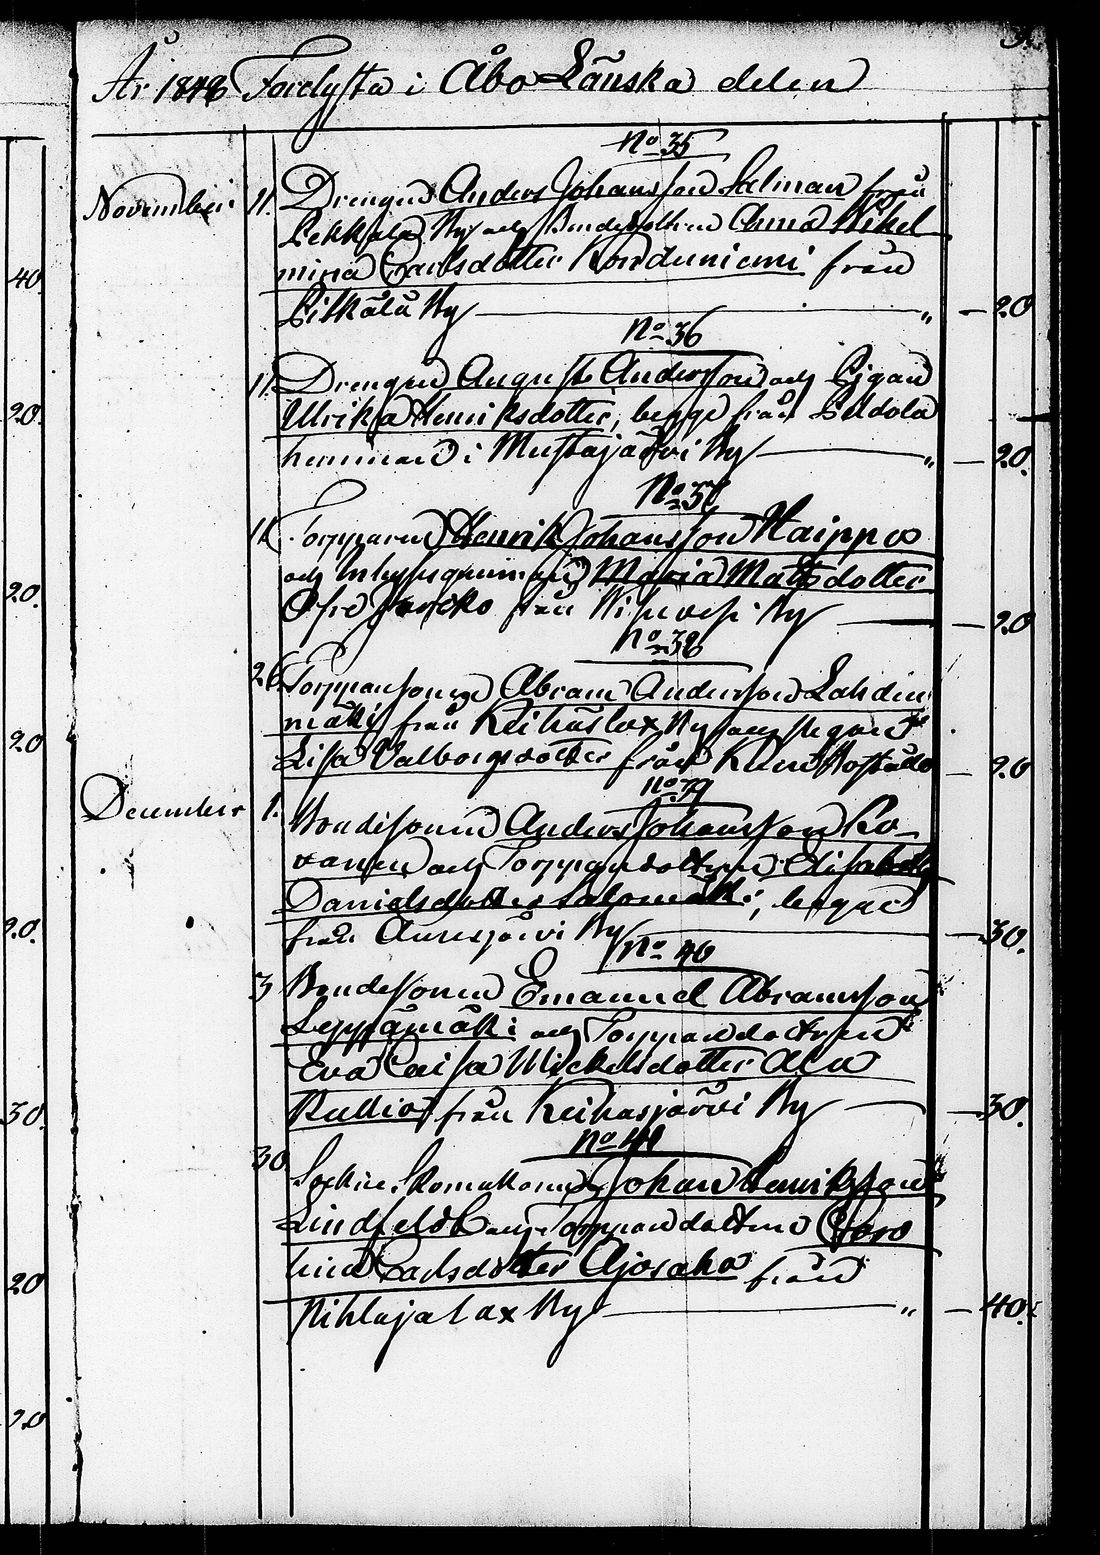 År 1848 Förlysta i Åbo Länska delen
No 35
November 11. Drengen Anders Johansson Salman från
Pekkala By och Bondedottren Anna Wilhel
mina Carlsdotter Kordeniemi från
Pitkälä By " — 20
No 36
11. Drengen August Andersson och Pigan
Ulrika Henriksdotter, begge från
hemman i Mustajärvi By " — 20.
No 37
11. Torparen Henrik Johansson Haippos
och Inhysesqvinnan Maria Matsdotter
från By — 20
No 38
26 Torparesonen Abram Andersson Lahden
mäki från Keihäslax By och Pigan
Lisa Valborgsdotter från — 20
No 39
December 1. Bondesonen Anders Johansson Ro-
vanen och Torparedottren Elisabeth
Danielsdotter Salomäki, begge
från Auresjärvi By — 30.
No 40
3 Bondesonen Emanuel Abramsson
Leppämäki och Torparedottren
Eva Caisa Mickelsdotter Ala
Kullio från Keihasjärvi By — 30.
No 41
30 Sockne Skomakaren Johan Henriksson
Lindfeldt och Torparedottren Caro
lina Carlsdotter Ajosaho från
Pihlajalax By " — 40.
40.
20.
20.
20
20.
30.
20
20